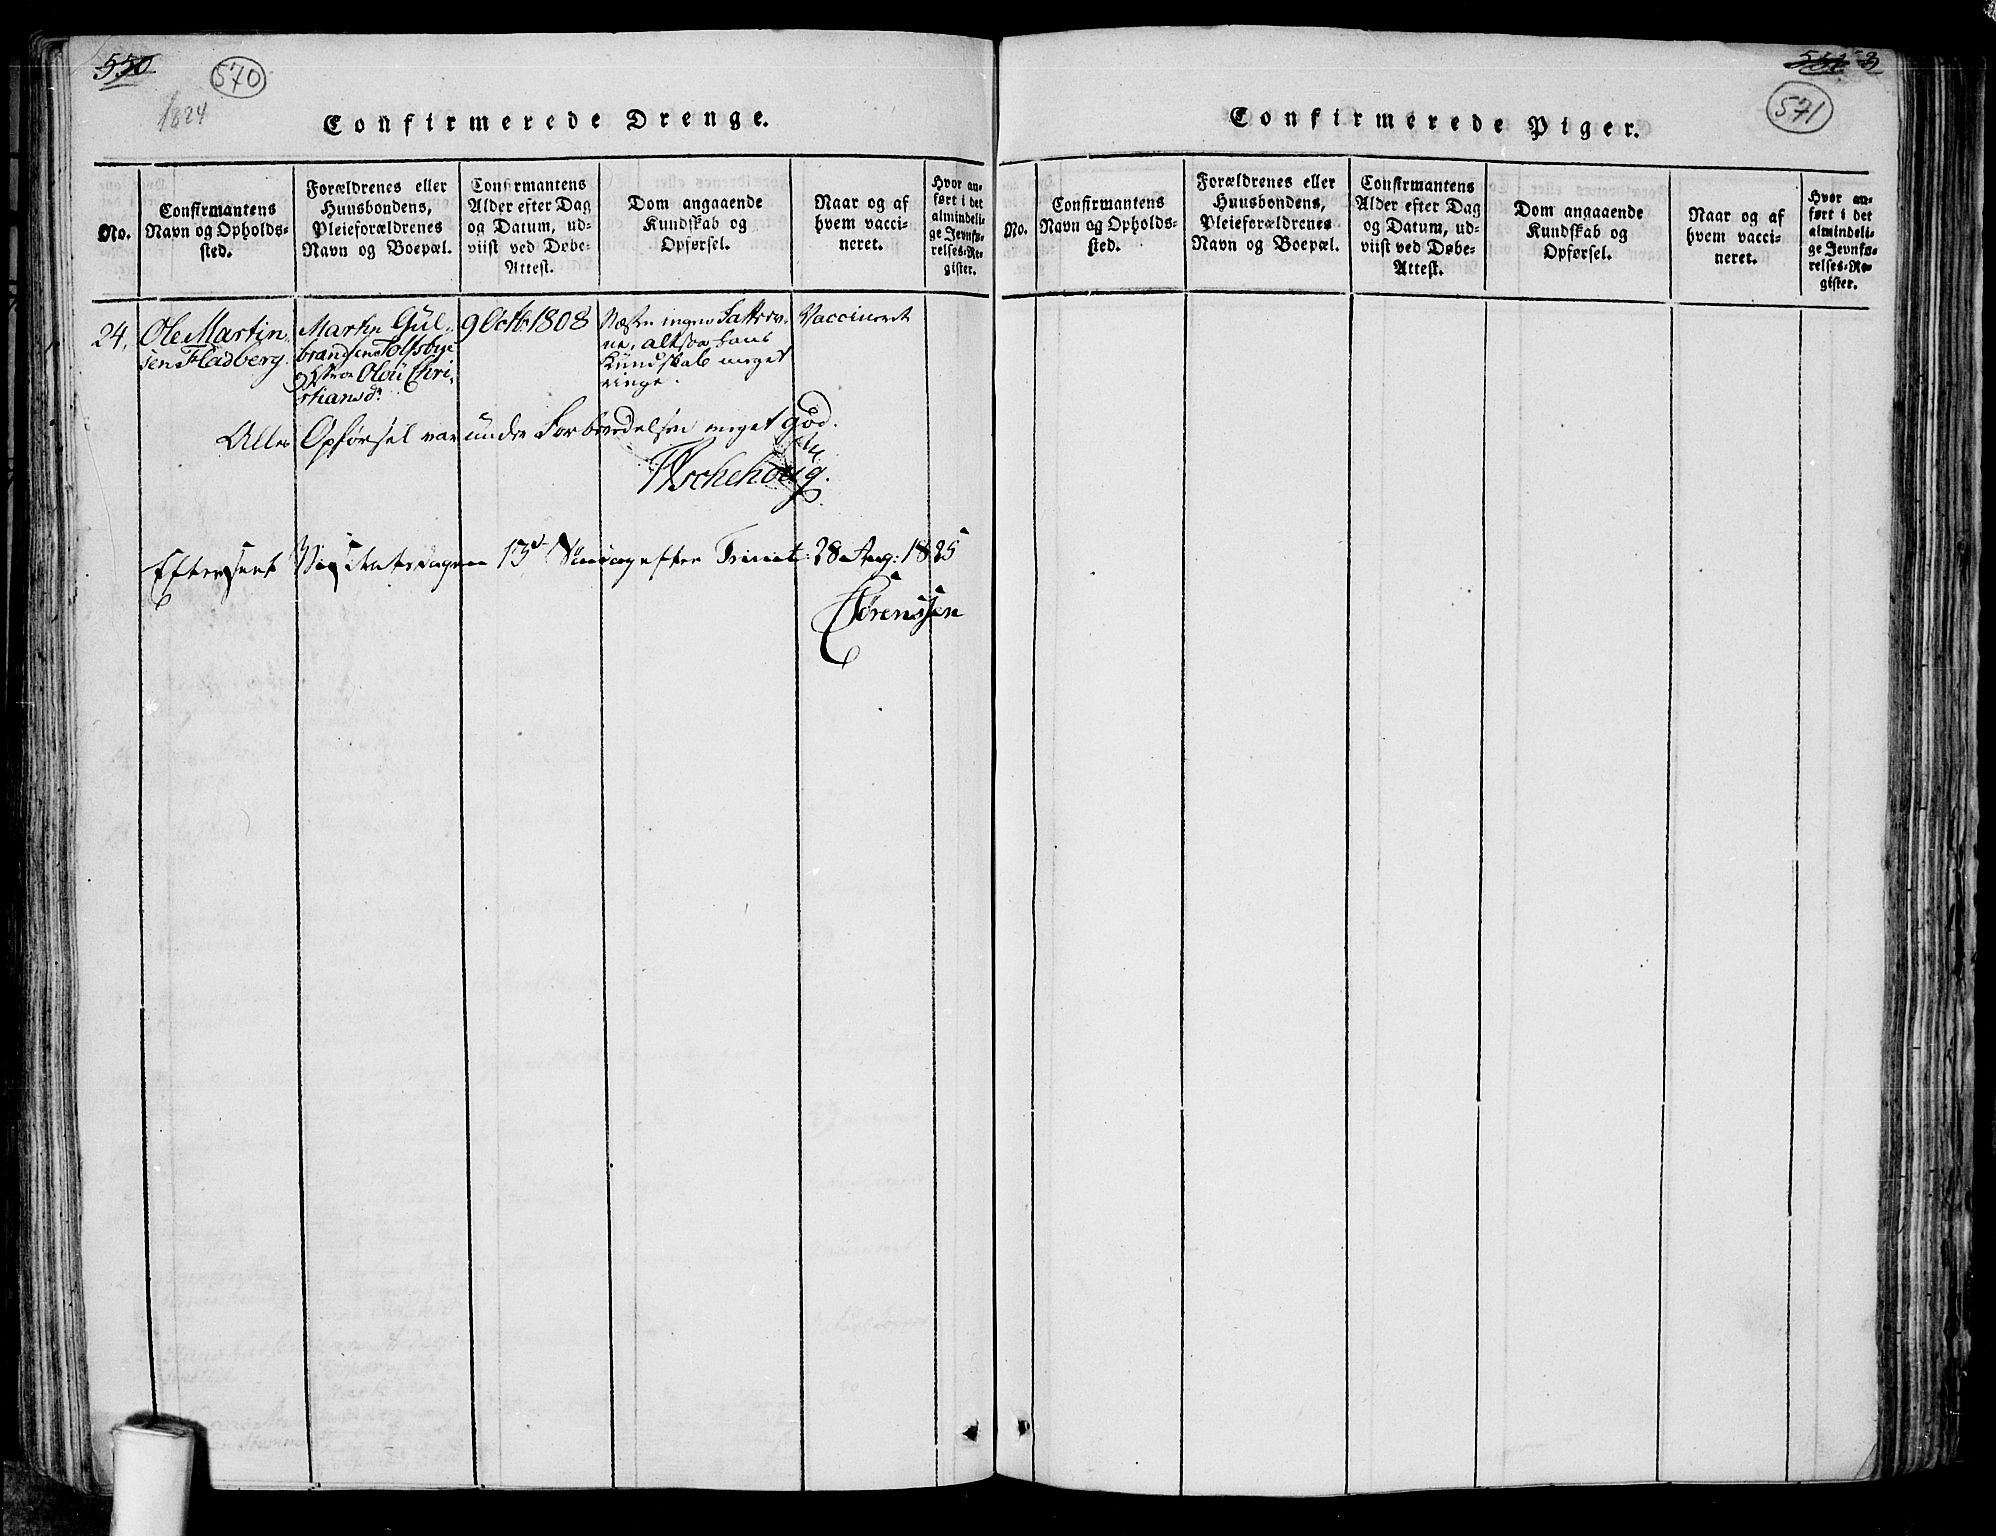 550
570
1824
Confirmerede Drenge.
No.
Confirmantens
Navn og Opholds-
sted.
Forældrenes eller
Huusbondens,
Pleieforældrenes
Navn og Boepæl.
Confirmantens
Alder efter Dag
og Datum, ud-
viist ved Døbe-
Attest.
Dom angaaende
Kundskab og
Opførsel.
Naar og af
hvem vacci-
neret.
Hvor an-
ført i det
almindeli-
ge Jevnfø-
relses-Re-
gister.
24,
Ole Martin
sen Fladberg.
Martin Gul-
brandsen Tolfsbye
Olou Chri-
stiansd.
9 Octb. 1808
Næsten ingen
altsaa hans
Kundskab meget
ringe.
Vaccineret
Alles Opførsel var under Forberedelsen meget god.
Aschehoug.
Efterseet Visitatsdagen 13de Søndag efter Trinit: 28 Aug: 1825
Sørenssen
571
Confirmerede Piger.
No.
Confirmantens
Navn og Opholds-
sted.
Forældrenes eller
Huusbondens,
Pleieforældrenes
Navn og Boepæl.
Confirmantens
Alder efter Dag
og Datum, ud-
viist ved Døbe-
Attest.
Dom angaaende
Kundskab og
Opførsel.
Naar og af
hvem vacci-
neret.
Hvor an-
ført i det
almindeli-
ge Jevnfø-
relses-Re-
gister.